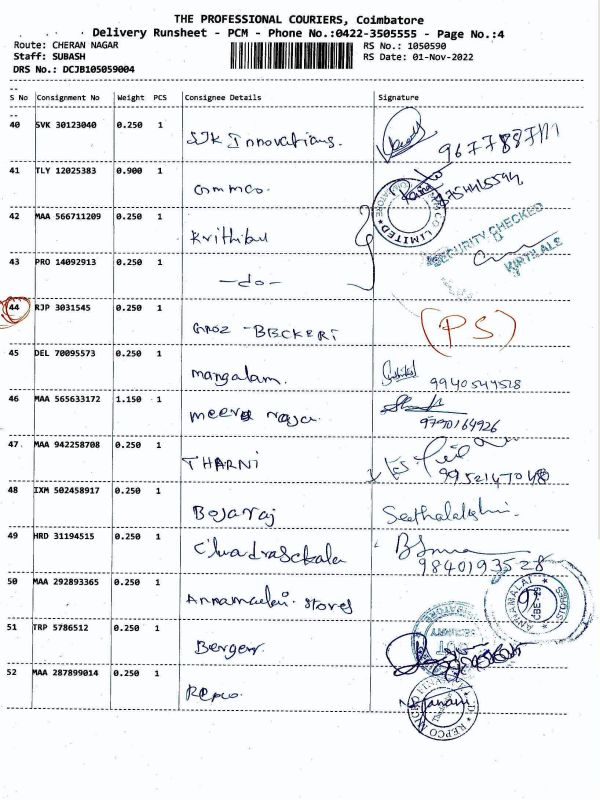 THE PROFESSIONAL COURIERS, Coimbatore
Delivery Runsheet - PCM - Phone No.:0422-3505555 - Page No.:4
Route: CHERAN NAGAR RS No.: 1050590
Staff: SUBASH RS Date: 01-Nov-2022
DRS No.: DCJB105059004
S No Consignment No Weight PCS Consignee Details Signature
40 SVK 30123040 0.250 1 SJK Innovations. 9677887711
41 TLY 12025383 0.900 1
42 MAA 566711209 0.250 1 Krithilal
CO LIMITED
SECURITY CHECKED
KIRTILALS
43 PRO 14092913 0.250 1 -do-
44 RJP 3031545 0.250 1 GROZ - BECKERT (PS)
45 DEL 70095573 0.250 1 mangalam. 9940544518
46 MAA 565633172 1.150 1 meera raja. 9790164926
47 MAA 942258708 0.250 1 THARNI 9952147048
48 IXM 502458917 0.250 1 Bojaraj Seethalakshmi.
49 HRD 31194515 0.250 1 Chadrasekala 9840193528
50 MAA 292893365 0.250 1 Annamalai. Stores
ANNAMALAI STORES
CBE-25
51 TRP 5786512 0.250 1 Berger.
52 MAA 287899014 0.250 1 Repco.
REPCO MICRO